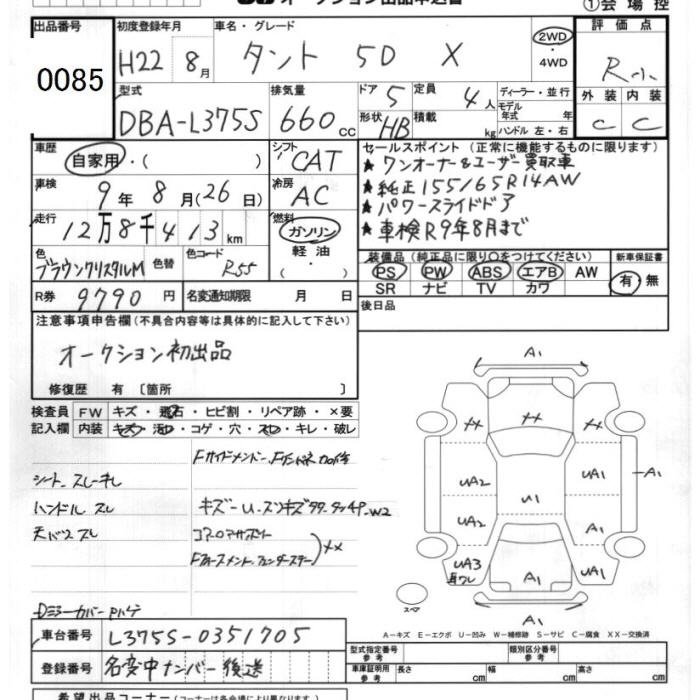 オークション出品申込書 ①会場控
出品番号 初度登録年月 車名・グレード 評価点
0085 H22 8月 タント 5D X 2WD ・4WD R小
型式 排気量 ドア 定員 ディーラー・並行 外装 内装
DBA-L375S 660cc 5 4人 モデル年式 年 C C
形状 HB 積載 kg ハンドル 左・右
車歴 自家用・( ) シフト CAT セールスポイント (正常に機能するものに限ります)
★ワンオーナー&ユーザー買取車
車検 9年8月(26日) 冷房 AC ★純正155/65R14AW
★パワースライドドア
走行 12万8千413km 燃料 ガソリン・軽油・( ) ★車検R9年8月まで
色 ブラウンクリスタルM 色替 色コード R55 装備品 (純正品に限り○をつけてください) 新車保証書
PS PW ABS エアB AW 有・無
SR ナビ TV カワ
R券 9790円 名変通知期限 月 日 後日品
注意事項申告欄(不具合内容等は具体的に記入して下さい)
オークション初出品
修復歴 有 〔箇所 〕
検査員記入欄 FW キズ・飛石・ヒビ割・リペア跡・×要
内装 キズ・汚れ・コゲ・穴・スレ・キレ・破レ
シート スレキレ
ハンドル スレ
キズ－U
W2
××
A1
A1
UA2
UA1
U1
UA2
UA1
UA3
A1
UA1
A1
スペア
A－キズ E－エクボ U－凹み W－補修跡 S－サビ C－腐食 XX－交換済
車台番号 L375S-0351705 型式指定番号 参考 類別区分番号 参考
登録番号 名変中ナンバー後送 車庫証明用 参考 長さ cm 幅 cm 高さ cm
希望出品コーナー (コーナーは各会場により異なります)